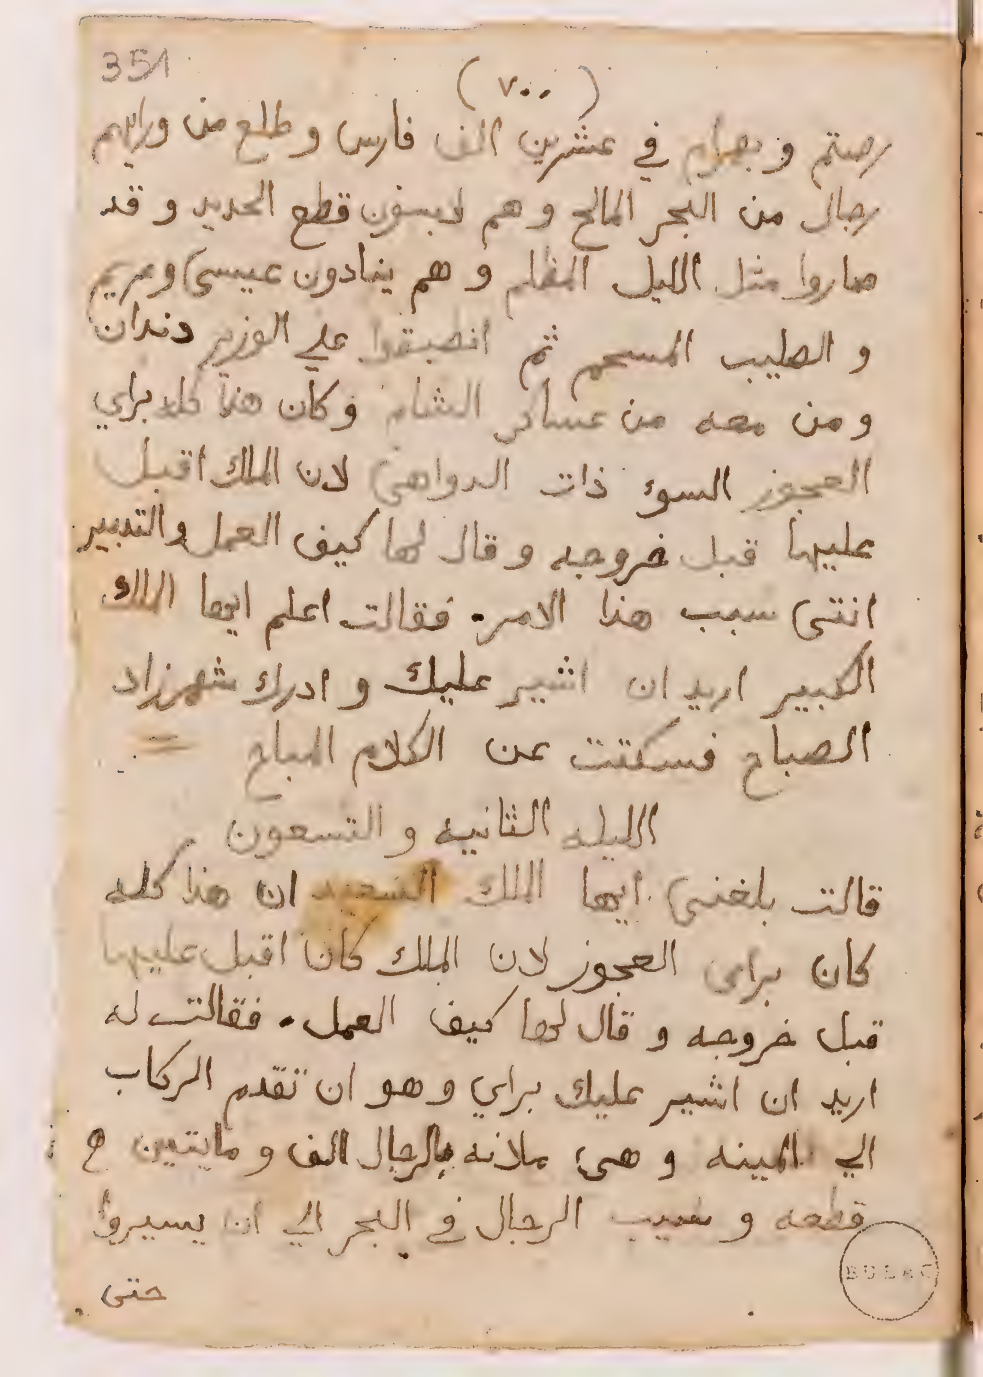 351
(٧٠٠)
رصتم و بهرام في عشرين الف فارس و طلع من ورايهم
رجال من البحر المالح و هم لابسون قطع الحديد و قد
صاروا مثل الليل المظلم و هم ينادون عيسى ومريم
و الصليب المسحم ثم انطبقوا علي الوزير دندان
و من معه من عساكر الشام و كان هذا كله براي
العجوز السوء ذات الدواهى لان الملك اقبل
عليها قبل خروجه و قال لها كيف العمل والتدبير
انتى سبب هذا الامر. فقالت اعلم ايها الملك
الكبير اريد ان اشير عليك و ادرك شهرزاد
الصباح فسكتت عن الكلام المباح
الليله الثانيه و التسعون
قالت بلغنى ايها الملك السعيد ان هذا كله
كان براى العجوز لان الملك كان اقبل عليها
قبل خروجه و قال لها كيف العمل. فقالت له
اريد ان اشير عليك براي و هو ان تقدم الركاب
الي المينه و هى ملانه بالرجال الف و مايتين
قطعه و الرجال في البحر الي ان يسيروا
حتى
BULAC